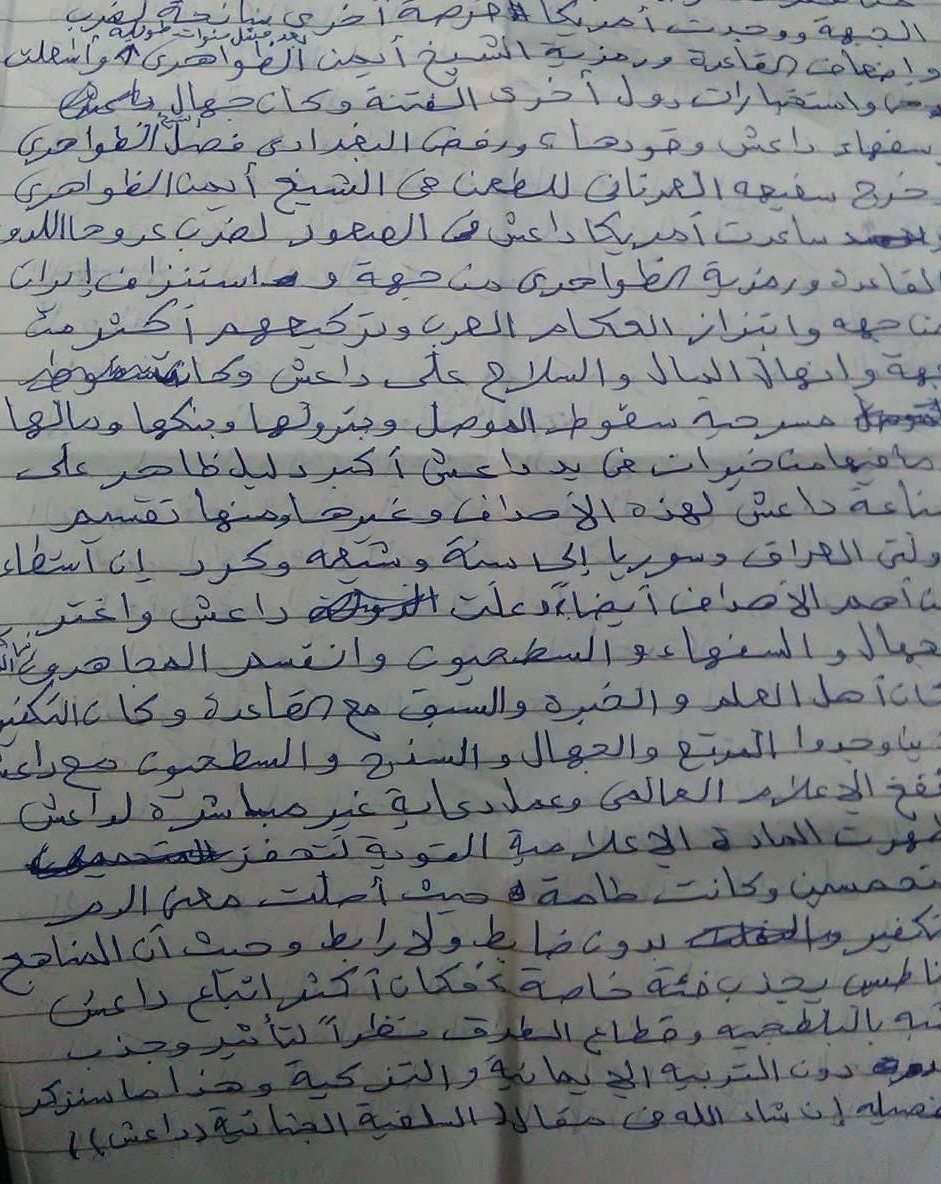 الجبهة ووجدت أمريكا فرصة أخرى سانحة لضرب
بعد فشل سنوات طويلة
وإضعاف القاعدة ورمزية الشيخ أيمن الظواهري وأشعلت
واستخبارات دول أخرى الفتنة وكان جهال
سفهاء داعش وقودها، ورفض البغدادي فصل الشيخ الظواهري
وخرج سفيهه العدناني للطعن في الشيخ أيمن الظواهري
ساعدت أمريكا داعش في الصعود لضرب عدوها اللدود
القاعدة ورمزية الظواهري من جهة و استنزاف إيران
من جهه وابتزاز الحكام العرب وتركيعهم أكثر من
جهة وانهال المال والسلاح على داعش وكانت
مسرحية سقوط الموصل وبترولها وبنكها ومالها
وما فيها من خيرات في يد داعش أكبر دليل ظاهر على
صناعة داعش لهذه الأهداف وغيرها ومنها تقسيم
دولتي العراق وسوريا إلى سنة وشيعه وكرد إن استطاع
من أهم الأهداف أيضاً، دعلت داعش واغتر
الجهال والسفهاء والسطحيون وانقسم المجاهدون
كان أهل العلم والخبرة والسبق مع القاعدة وكان التكفير
وجدوا المرتع والجهال والسذج والسطحيون مع داعش
نفخ الإعلام العالمي وعمل دعاية غير مباشرة لداعش
ظهرت المادة الإعلامية القوية لتحفز
المتحمسين وكانت طامة حيث أصلت معنى الدم
التكفير بدون ضابط ولا رابط وحيث أن المناهج
مغناطيس يجذب فئة خاصة، فكان أكثر اتباع داعش
أشبه بالبلطجيه وقطاع الطرق نظراً لتأثير وجذب
دون التربيه الإيمانية والتزكية وهذا ما سنذكر
تفصيله إن شاء الله في مقال ((السلفية الجنائية (داعش))